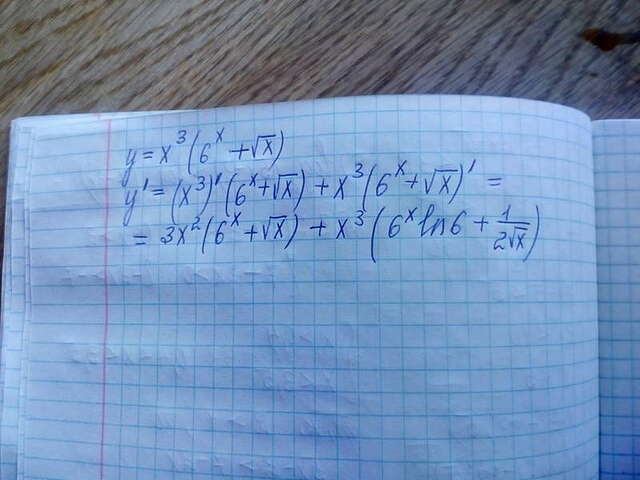 y = x³(6ˣ + √x)
y' = (x³)'(6ˣ + √x) + x³(6ˣ + √x)' =
= 3x²(6ˣ + √x) + x³(6ˣ ln6 + 1/(2√x))